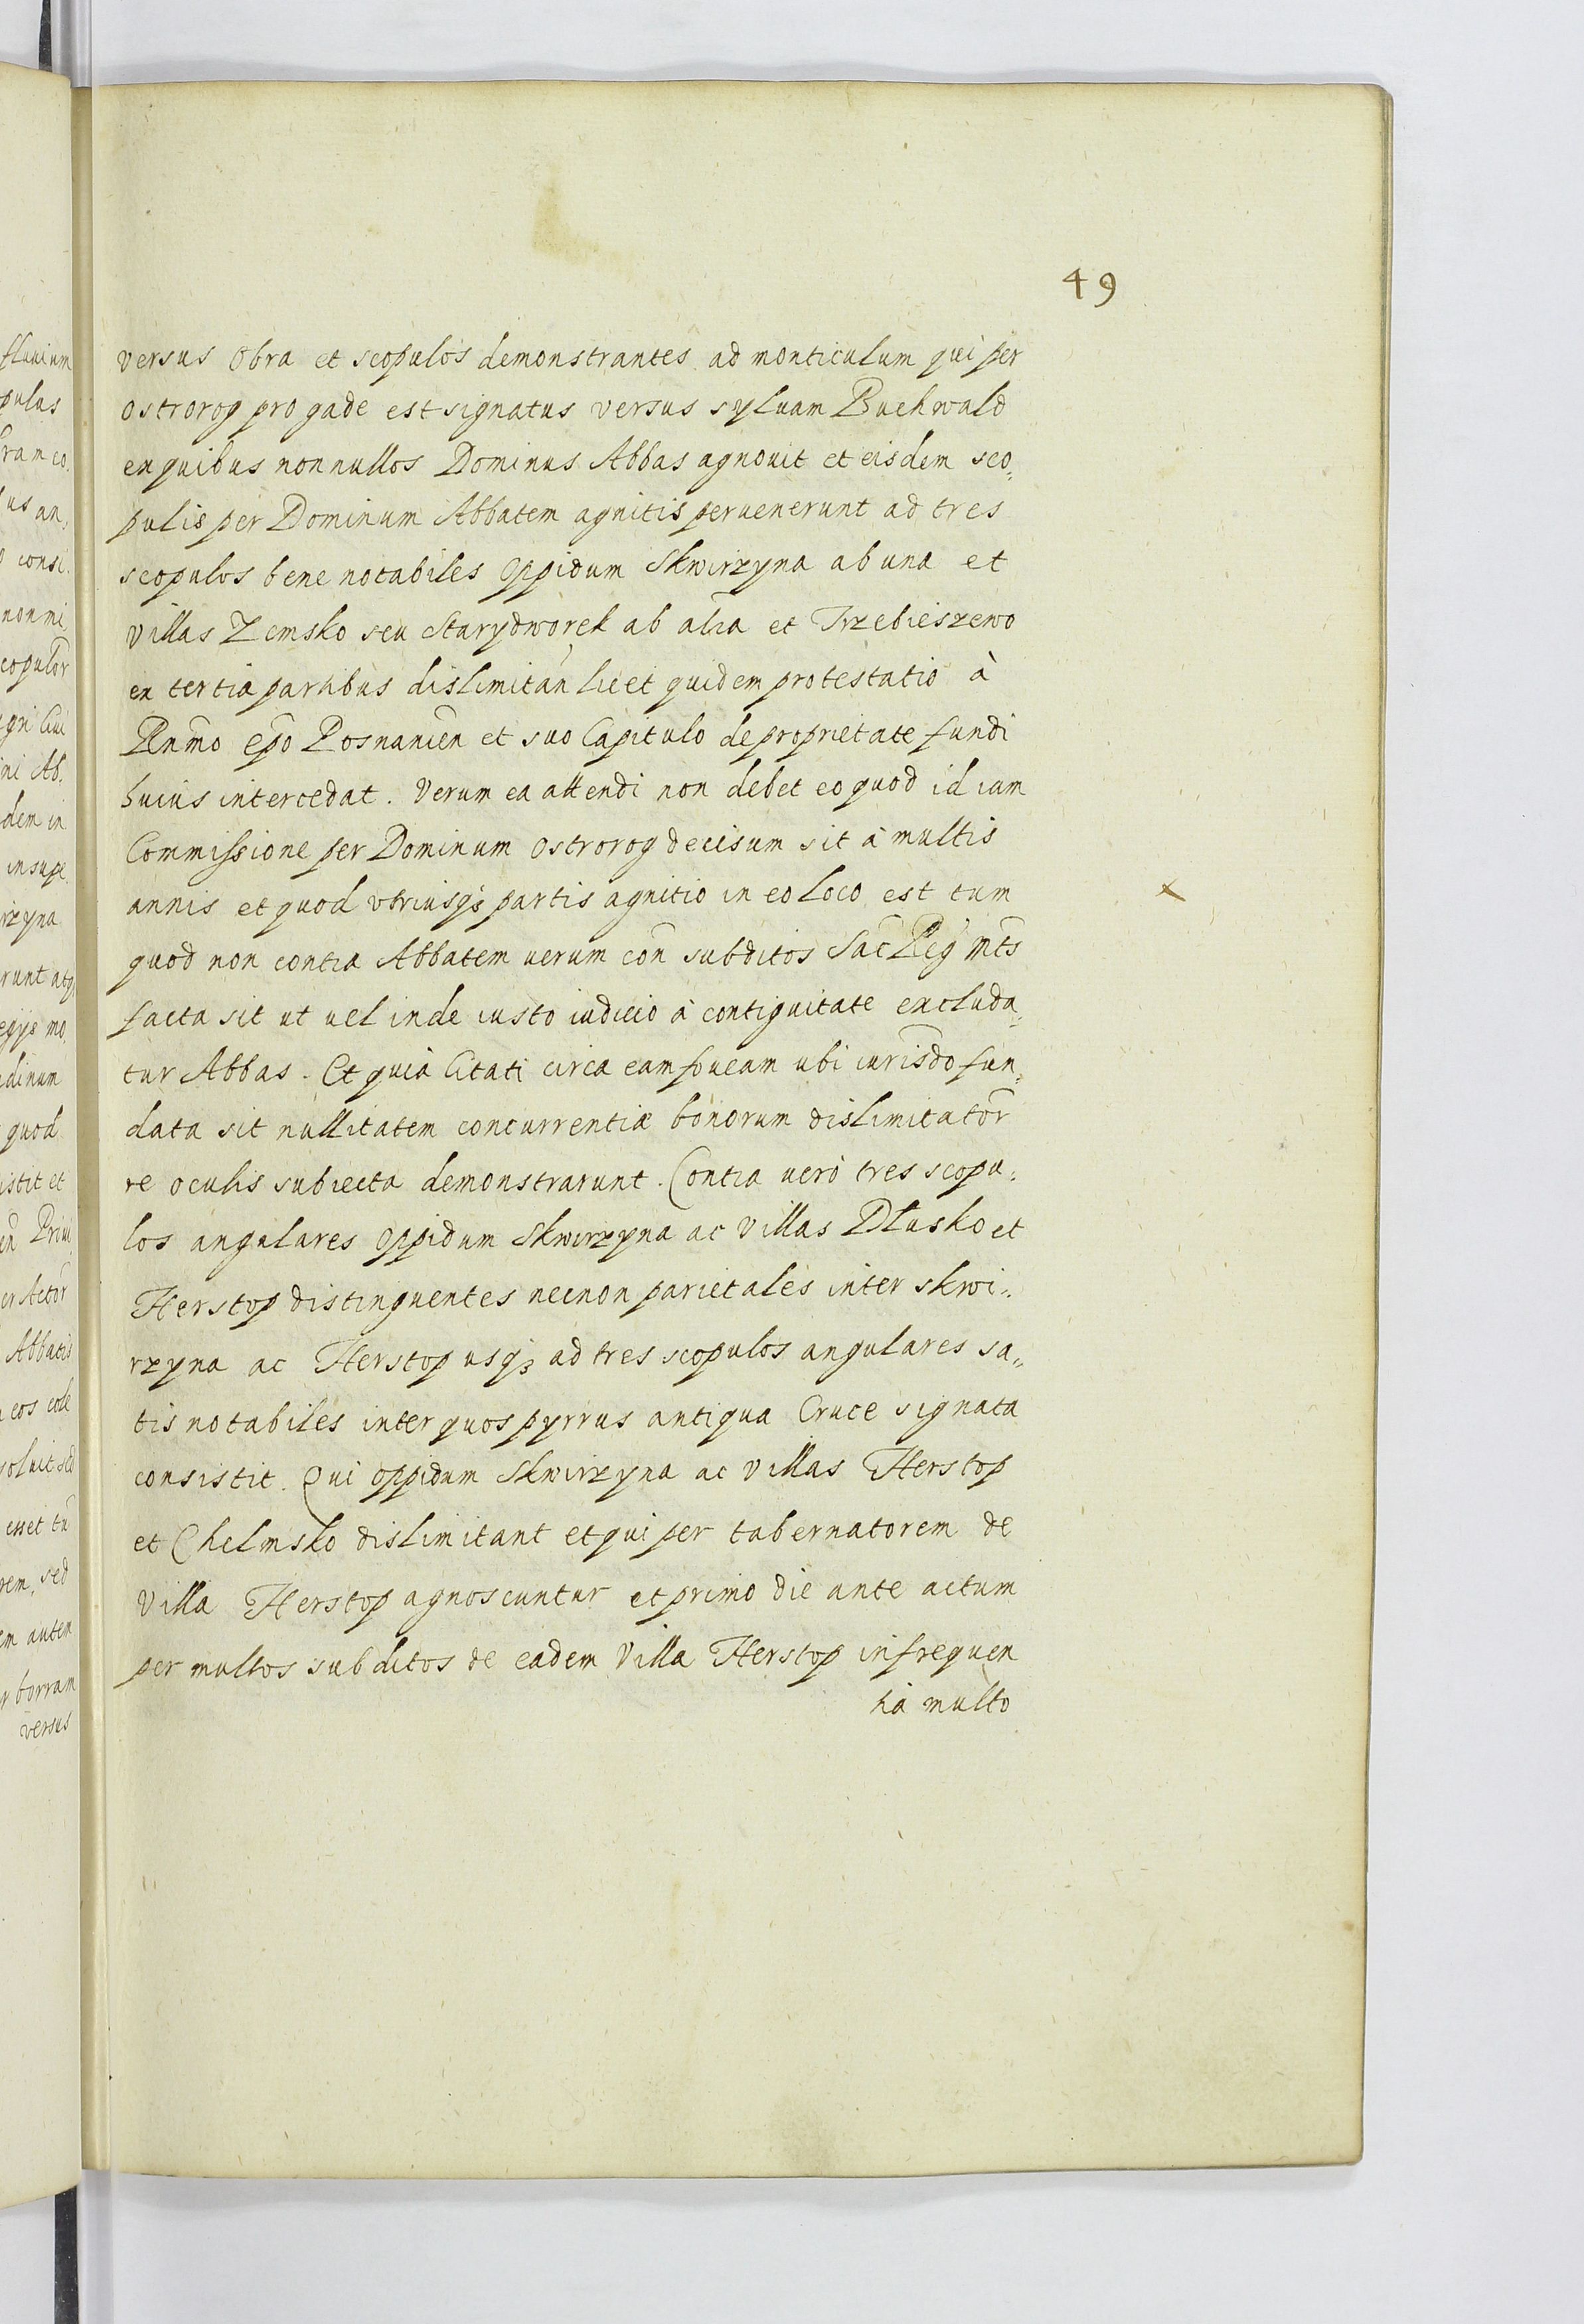 49
versus Obra et scopulos demonstrantes ad monticulum qui per
Ostrorog pro gade est signatus versus syluam Buchwald
ex quibus nonnullos Dominus Abbas agnouit et eisdem sco„
pulis per Dominum Abbatem agnitis peruenerunt ad tres
scopulos bene notabiles Oppidum Skwirzyna ab una et
Villas Zemsko seu Starydworek ab alia et Trzebieszewo
ex tertia partibus dislimitań licet quidem protestatio à
Rn̄mo ep̄o Posnanien̄ et suo Capitulo de proprietate fundi
huius intercedat. Verum ea attendi non debet eo quod id iam
Commissione per Dominum Ostrorog decisum sit à multis
annis et quod vtriusq́ partis agnitio in eo loco est tum
quod non contra Abbatem uerum con̄ subditos Sac̄ Reg̃ Mt̄s
facta sit ut uel inde iusto iudicio à contiguitate excluda„
tur Abbas. Et quia Citati circa eam foueam ubi iurisd̄o fun„
data sit nullitatem concurrentiæ bonorum dislimitator̄
re oculis subiecta demonstrarunt. Contra uerò tres scopu„
los angulares Oppidum Skwirzyna ac Villas Dłusko et
Herstop distinguentes necnon parietales inter Skwi„
rzyna ac Herstop usq₃ ad tres scopulos angulares sa„
tis notabiles inter quos pyrrus antiqua Cruce signata
consistit. Qui Oppidum Skwirzyna ac Villas Herstop
et Chelmsko dislimitant et qui per tabernatorem de
Villa Herstop agnoscuntur et primo die ante actum
per multos subditos de eadem Villa Herstop infrequen
tia multo